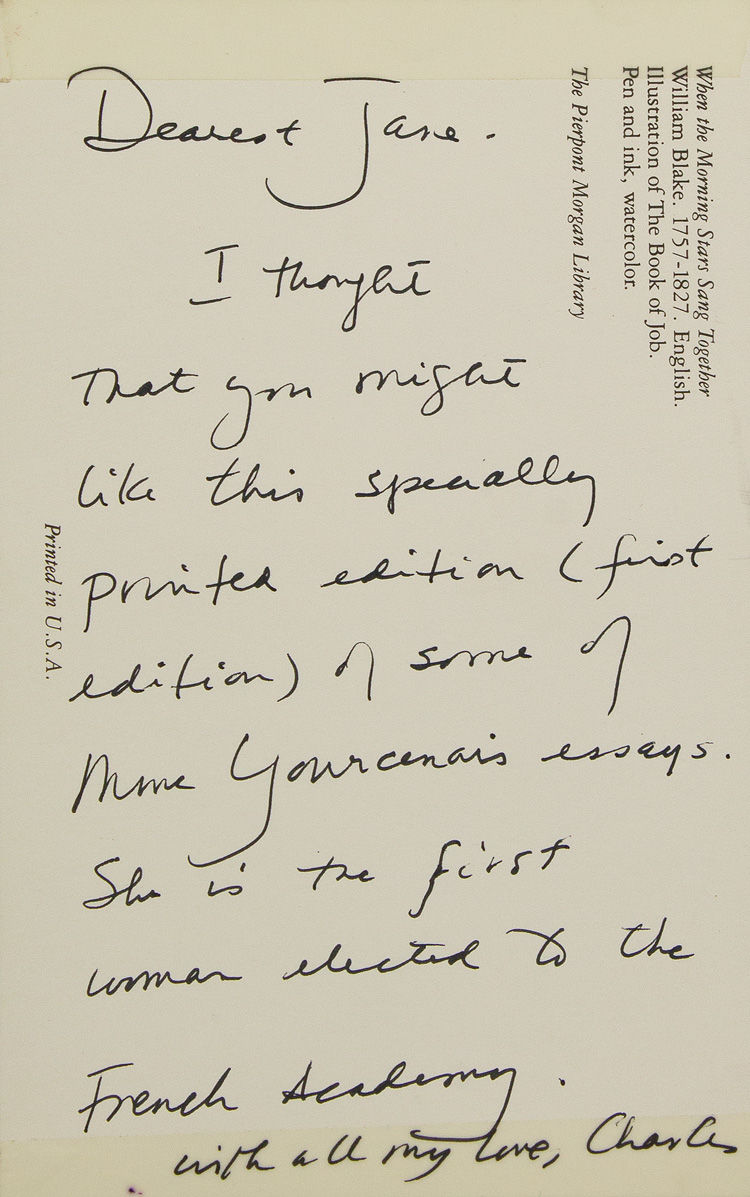 Dearest Jane.
I thought
that you might
like this specially
printed edition (first
edition) of some of
Mme Yourcenar's essays.
She is the first
woman elected to the
French Academy.
with all my love, Charles
When the Morning Stars Sang Together
William Blake. 1757-1827. English.
Illustration of The Book of Job.
Pen and ink, watercolor.
The Pierpont Morgan Library
Printed in U.S.A.